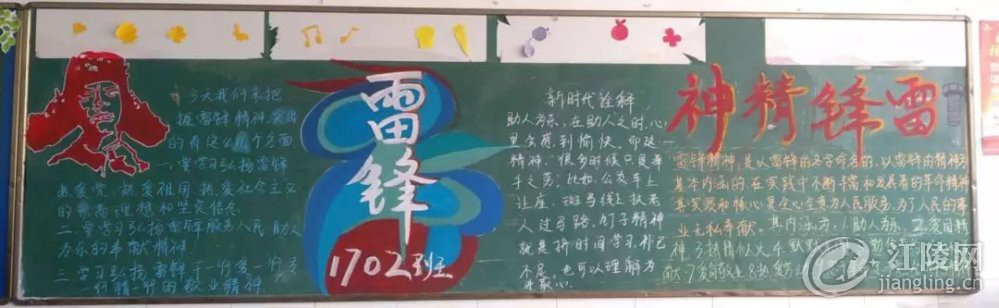 今天我们来把
握雷锋精神突出
的有这么几个方面
一.要学习弘扬雷锋
热爱党、热爱祖国、热爱社会主义
的崇高理想和坚定信念
二.要学习弘扬雷锋服务人民 助人
为乐的奉献精神
三.学习弘扬雷锋干一行爱一行专
一行精一行的敬业精神
雷
锋
1702班
新时代诠释
助人为乐,在助人之时,心
里会感到愉快。即这一
精神。很多时候只是举
手之劳,比如:公交车上
让座、斑马线上扶老
人过马路,钉子精神
就是挤时间学习,补己
不足,也可以理解为
神精锋雷
雷锋精神,是以雷锋的名字命名的、以雷锋的精神为
基本内涵的、在实践中不断丰富和发展着的革命精神
其实质和核心是全心全意为人民服务,为了人民的事
业无私奉献。其内涵为:1.助人为乐 2.
江陵网
jiangling.cn